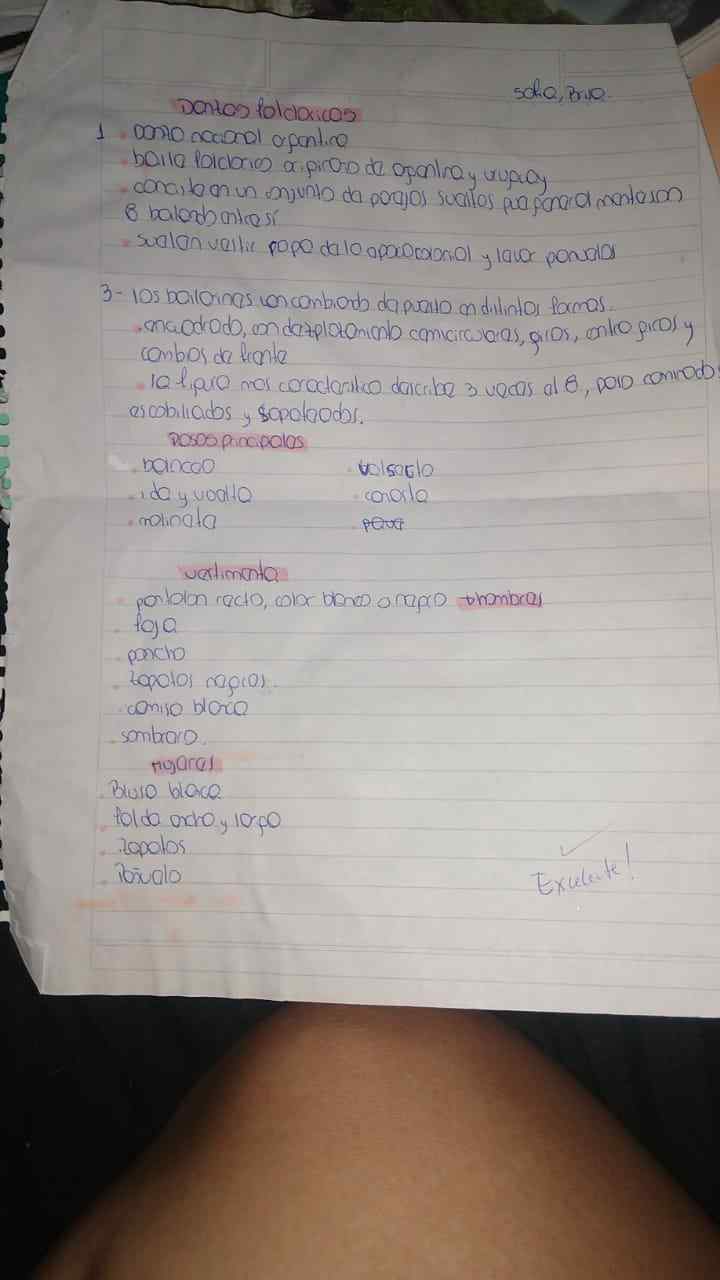 Sofia, Brisa.
Danzas folcloricas
1 . danza nacional argentina
. baile folclorico originario de argentina y uruguay
. concite en un conjunto de parejas sueltas que generalmente son
8 bailando entre si
. suelen vestir ropa de la epoca colonial y llevar panuelos
3- los bailarines van cambiando de puesto en distintas formas.
. encuadrado, en con circulares, giros, contra giros y
cambios de frente
. la figura mas caracteristica describe 3 veces al 8, pero con
escobillados y zapateados.
Pasos principales
. balanceo . valseado
. ida y vuelta . canasta
. molinete .
vestimenta
. pantalon recto, color blanco o negro → hombres
. faja
. poncho
. zapatos negros.
. camisa blanca
. sombrero.
mujeres
. Blusa blanca
. falda ancha y larga
. zapatos
. Pañuelo
Excelente!